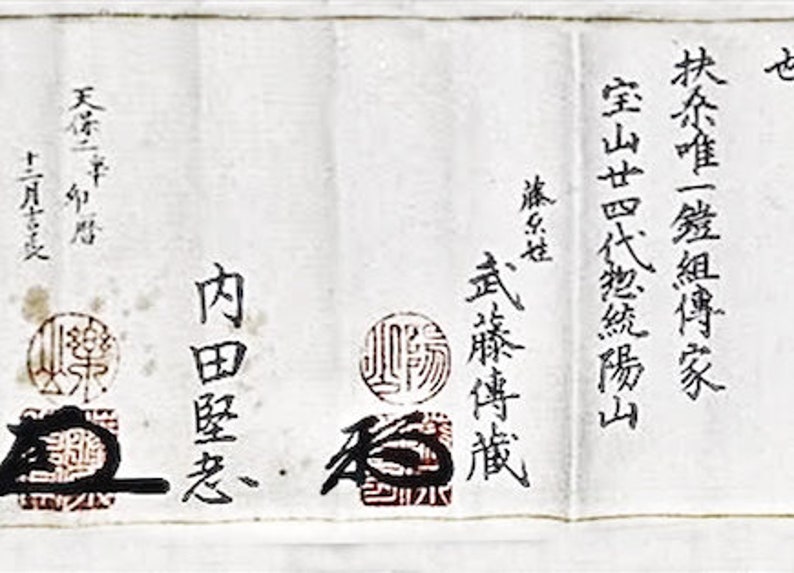 也
扶桑唯一鐙組傳家
宝山廿四代惣統陽山
藤原姓
武藤傳蔵
陽山
内田堅忠
天保二年卯暦
十二月吉辰